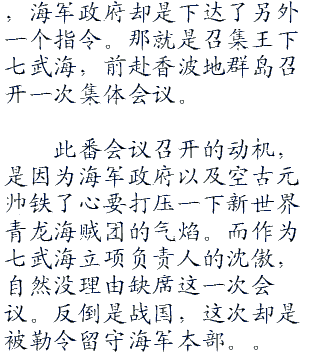 ，海军政府却是下达了另外
一个指令。那就是召集王下
七武海，前赴香波地群岛召
开一次集体会议。
此番会议召开的动机，
是因为海军政府以及空古元
帅铁了心要打压一下新世界
青龙海贼团的气焰。而作为
七武海立项负责人的沈傲，
自然没理由缺席这一次会
议。反倒是战国，这次却是
被勒令留守海军本部。。